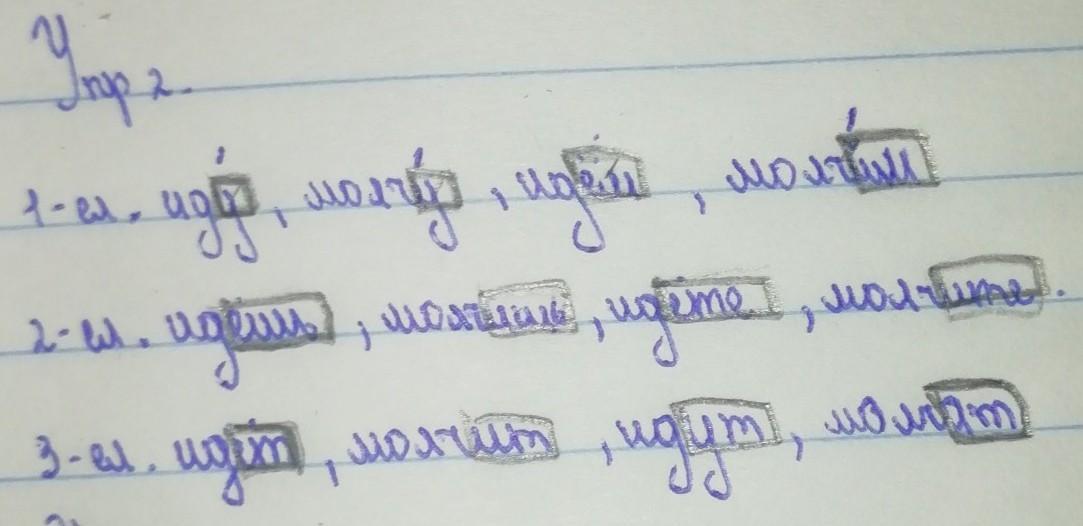 Упр 2.
1-ел. иду́, молчу́, идём, молчи́м
2-ел. идёшь, молчишь, идёте, молчите.
3-ел. идёт, молчит, идут, молчат